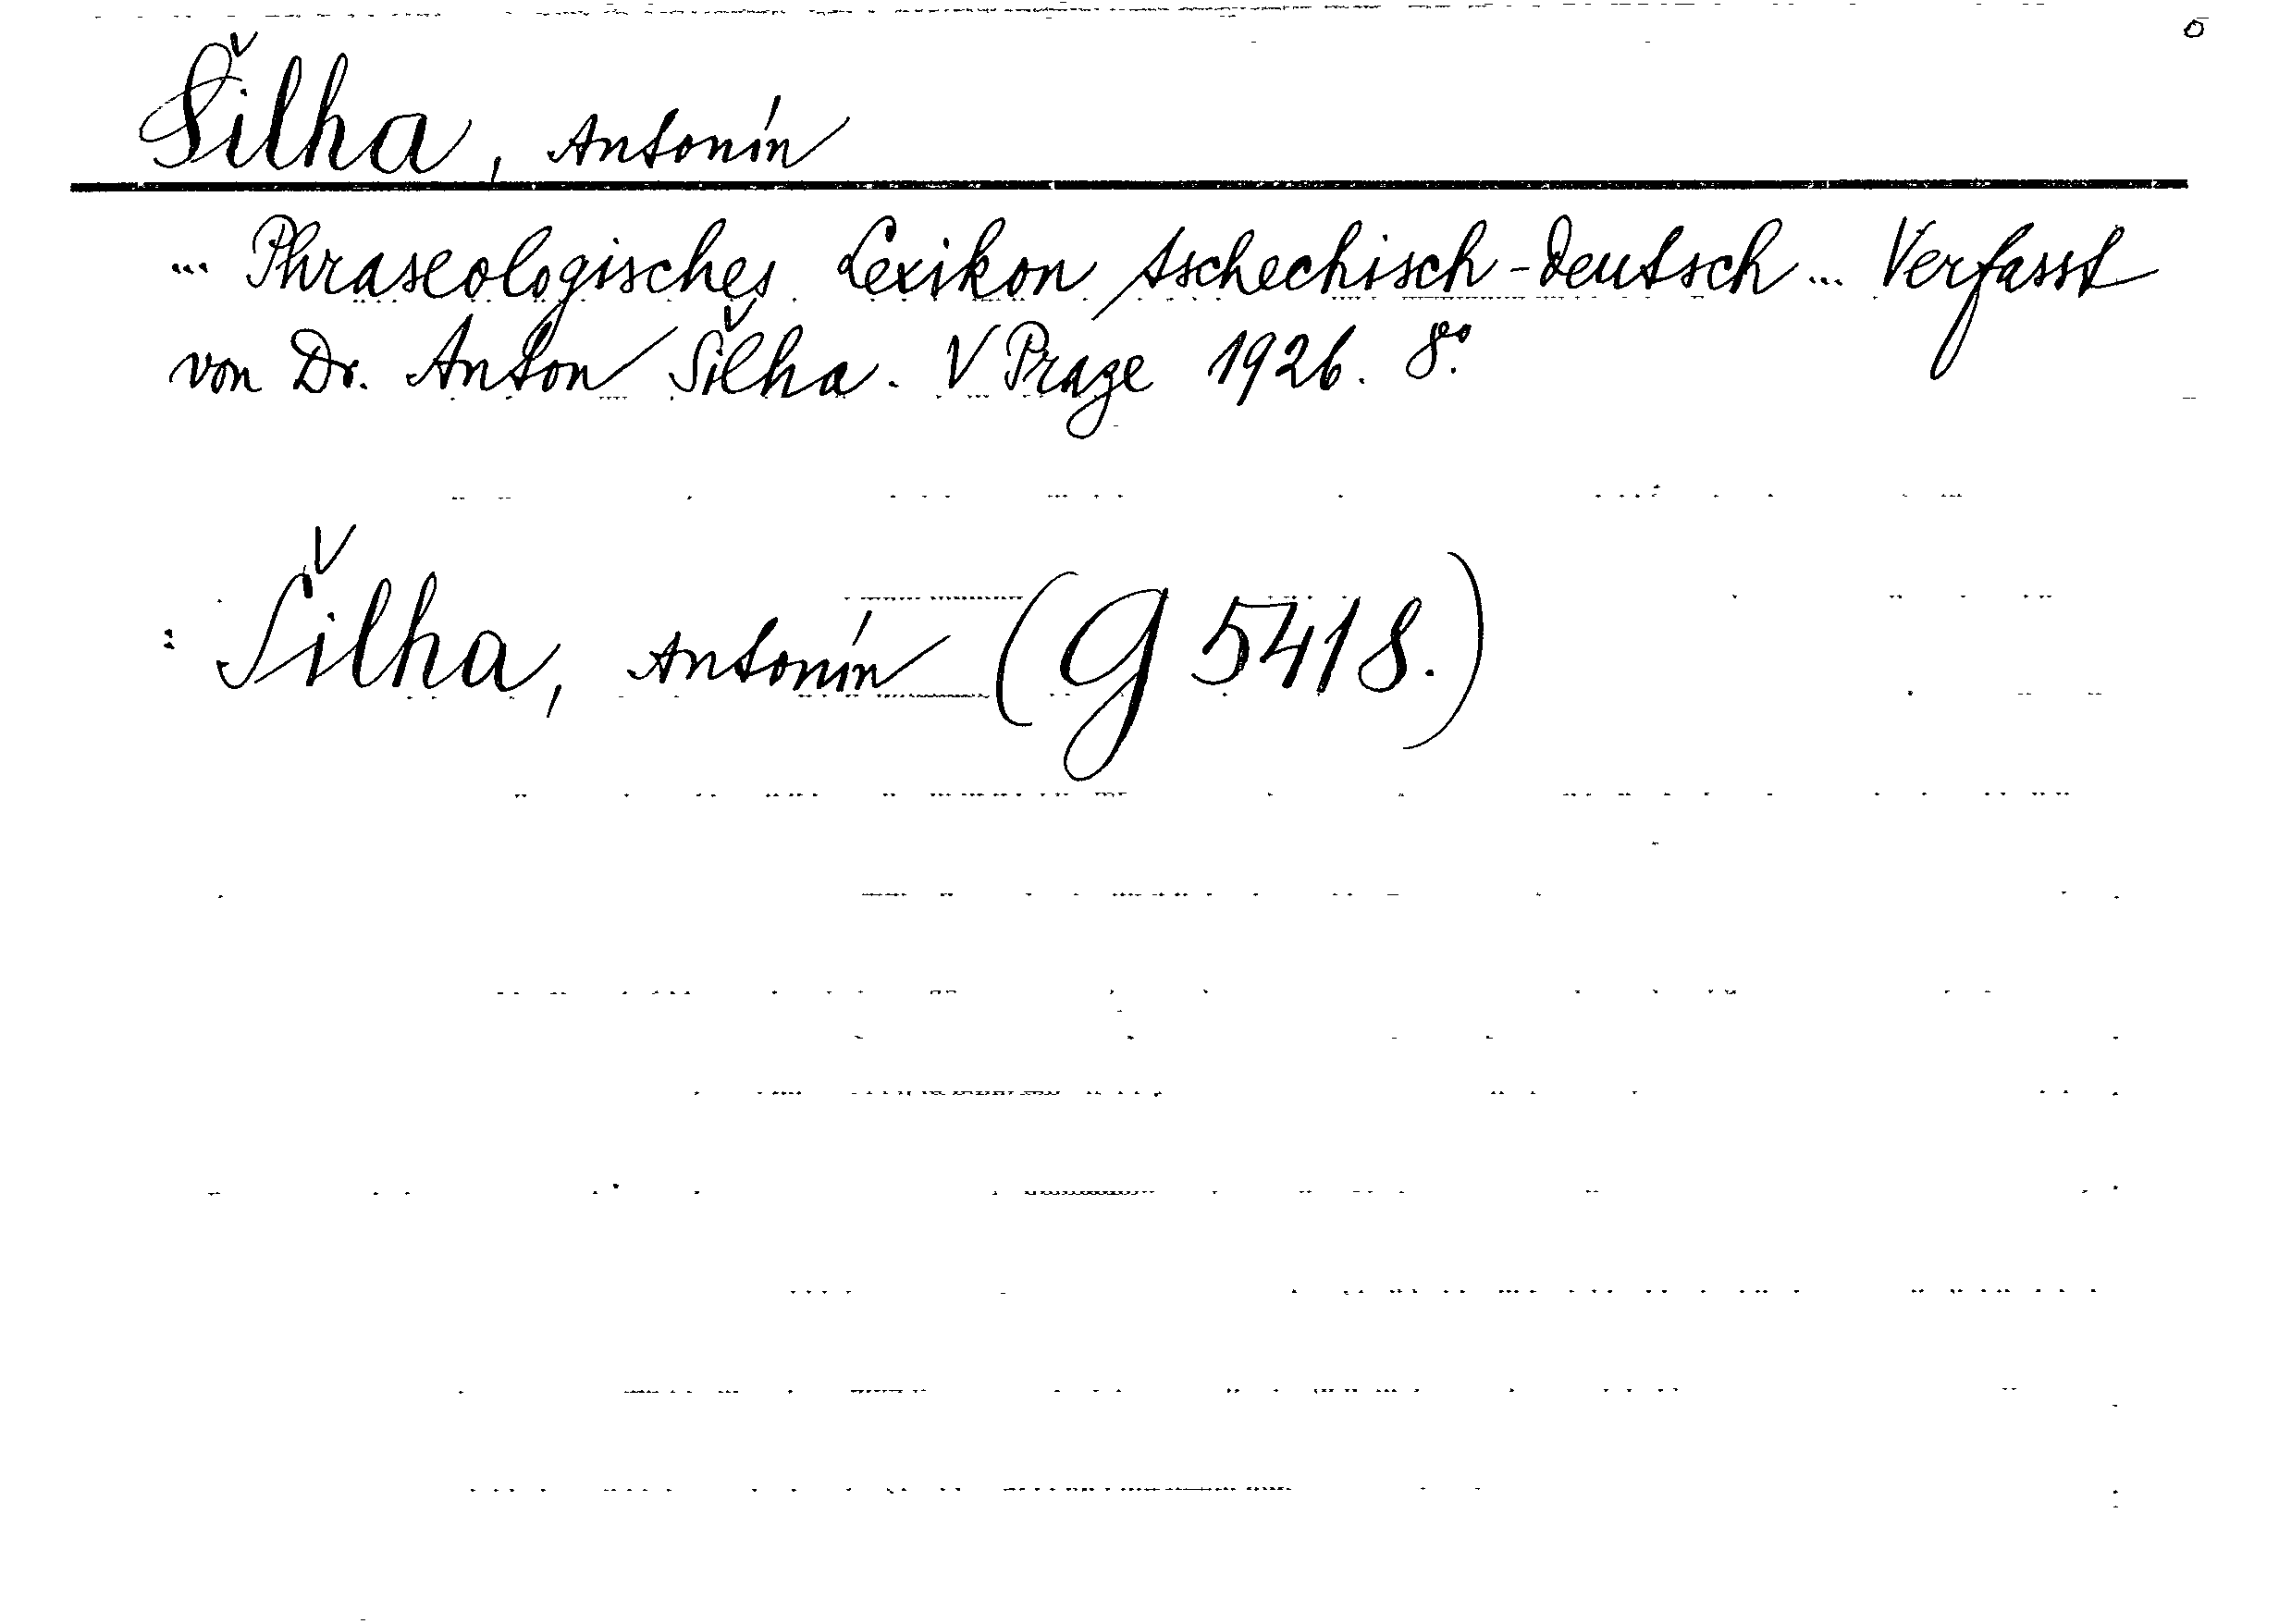 Šilha, Antonín
... Phraseologisches Lexikon tschechisch-deutsch ... Verfasst
von Dr. Anton Šilha. V Praze 1926. 8°.
: Šilha, Antonín (G 5418.)